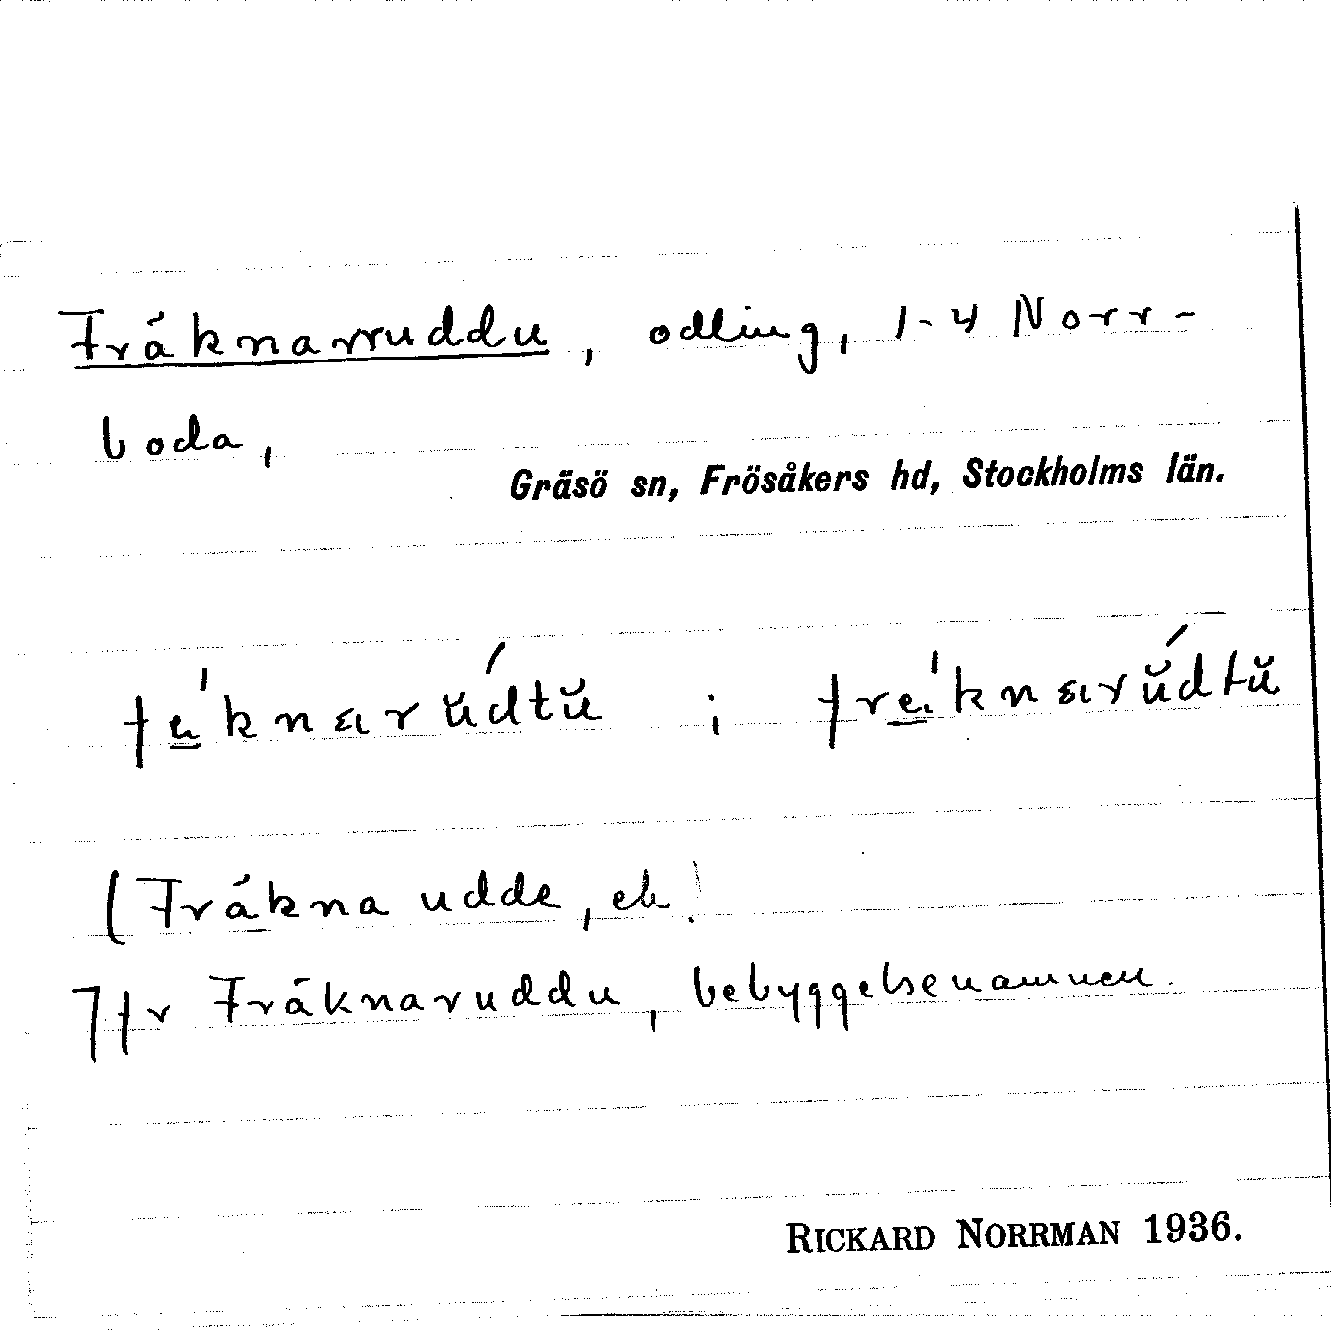 Fräknarruddu, odling, 1-4 Norr-
boda,
Gräsö sn, Frösåkers hd, Stockholms län.
(Fräkna udde, ek.)
Jfr Fräknaruddu, bebyggelsenamnen.
RICKARD NORRMAN 1936.